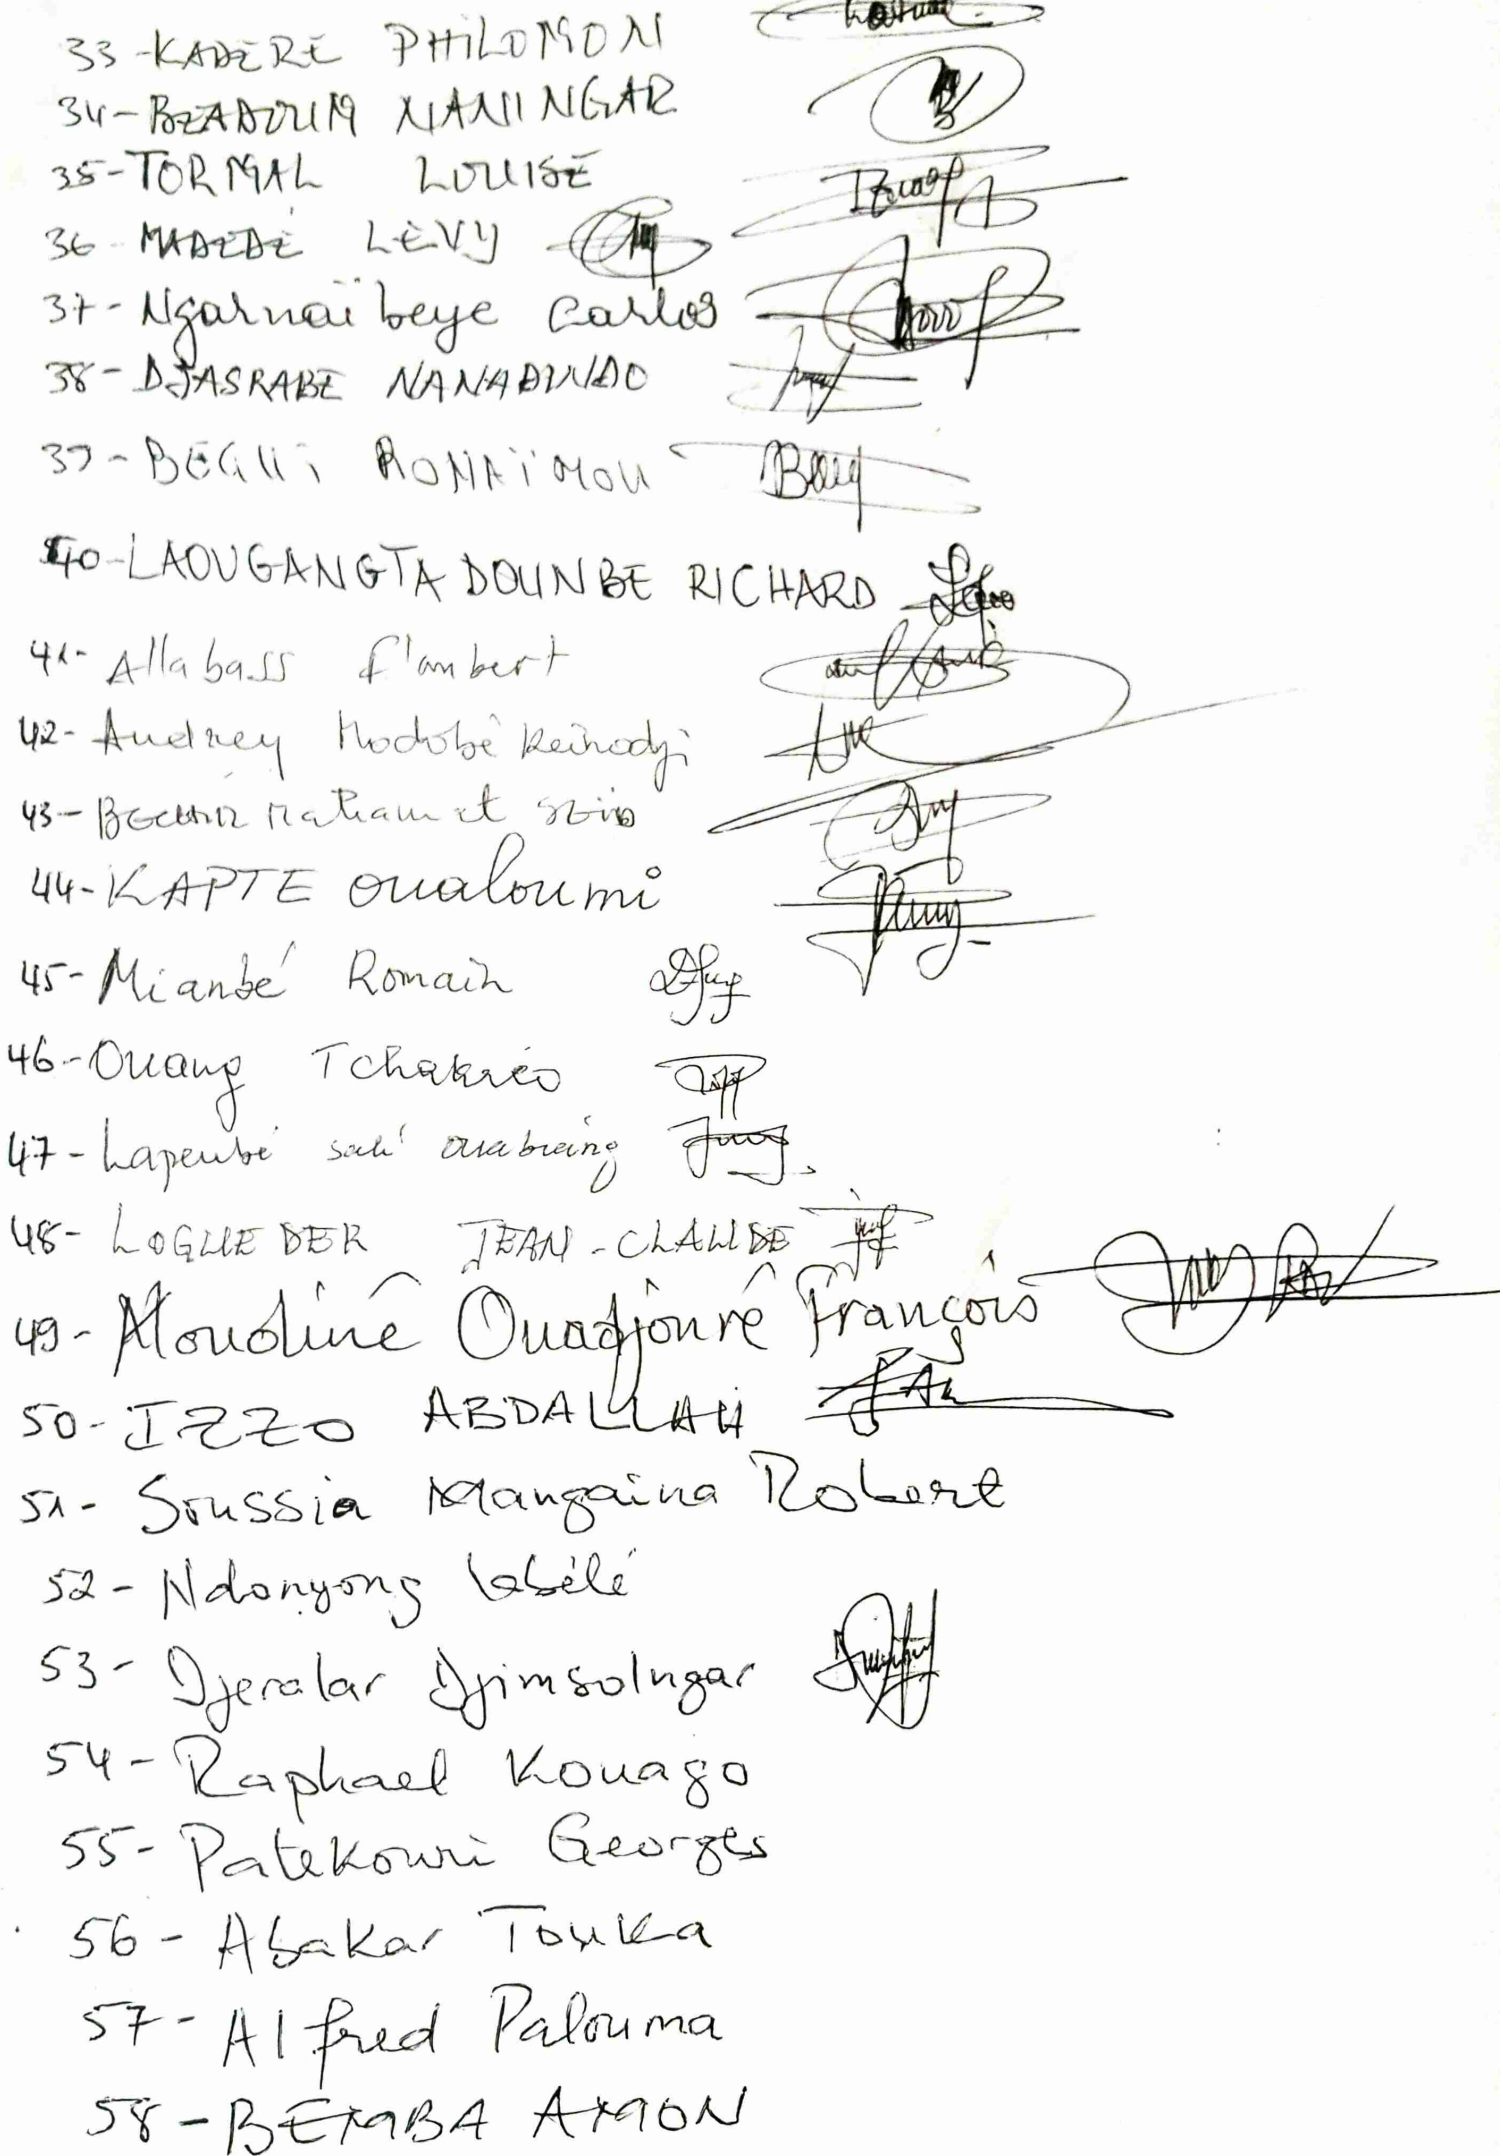 33-KADERE PHILOMON
34-BEADOUM NANINGAR
35-TORMAL LOUISE
36-MADEDE LEVY
37-Ngarnaïbeye Carlos
38-DJASRABE NANADINDO
39-BEGUI RONAÏMOU
40-LAOUGANGTA DOUNBE RICHARD
41-Allabass flambert
42-Audrey Modobé Keihodji
43-BECHIR Mahamat
44-KAPTE oualoumi
45-Mianbé Romain
46-Ouang Tchakréo
47-Lapeubé
48-LOGUEDER JEAN-CLAUDE
49-Moudiné Ouadjonré François
50-IZZO ABDALLAH
51-Soussia Mangaina Robert
52-Ndonyong Labélé
53-Djeralar Djimsolngar
54-Raphael Kouago
55-Patekouri Georges
56-Abakar Touka
57-Alfred Palouma
58-BEMBA AMON